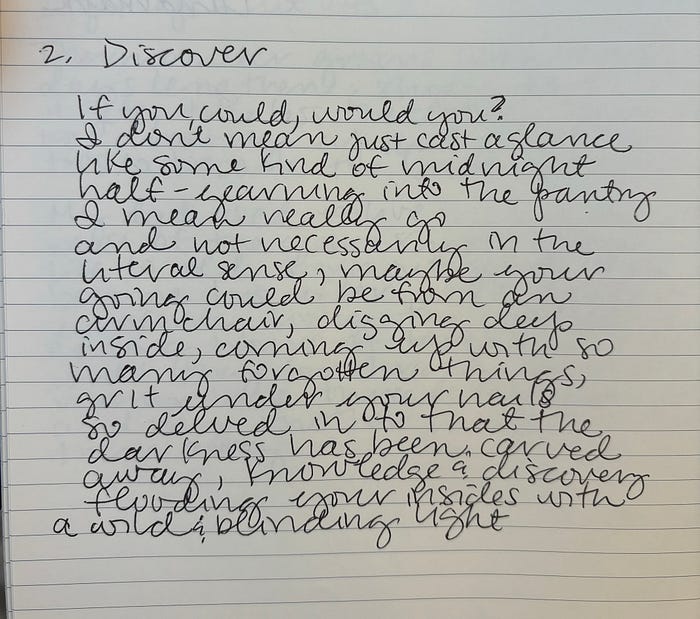 2. Discover
If you could, would you?
I don't mean just cast a glance
like some kind of midnight
half-yearning into the pantry
I mean really go
and not necessarily in the
literal sense, maybe your
going could be from an
armchair, digging deep
inside, coming up with so
many forgotten things,
grit under your nails
so delved in to that the
darkness has been carved
away, knowledge & discovery
flooding your insides with
a wild & blinding light